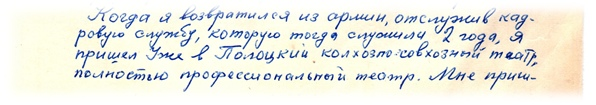 Когда я возвратился из армии, отслужив кад-
ровую службу, которую тогда служили 2 года, я
пришел уже в Полоцкий колхозно-совхозный театр,
полностью профессиональный театр. Мне приш-